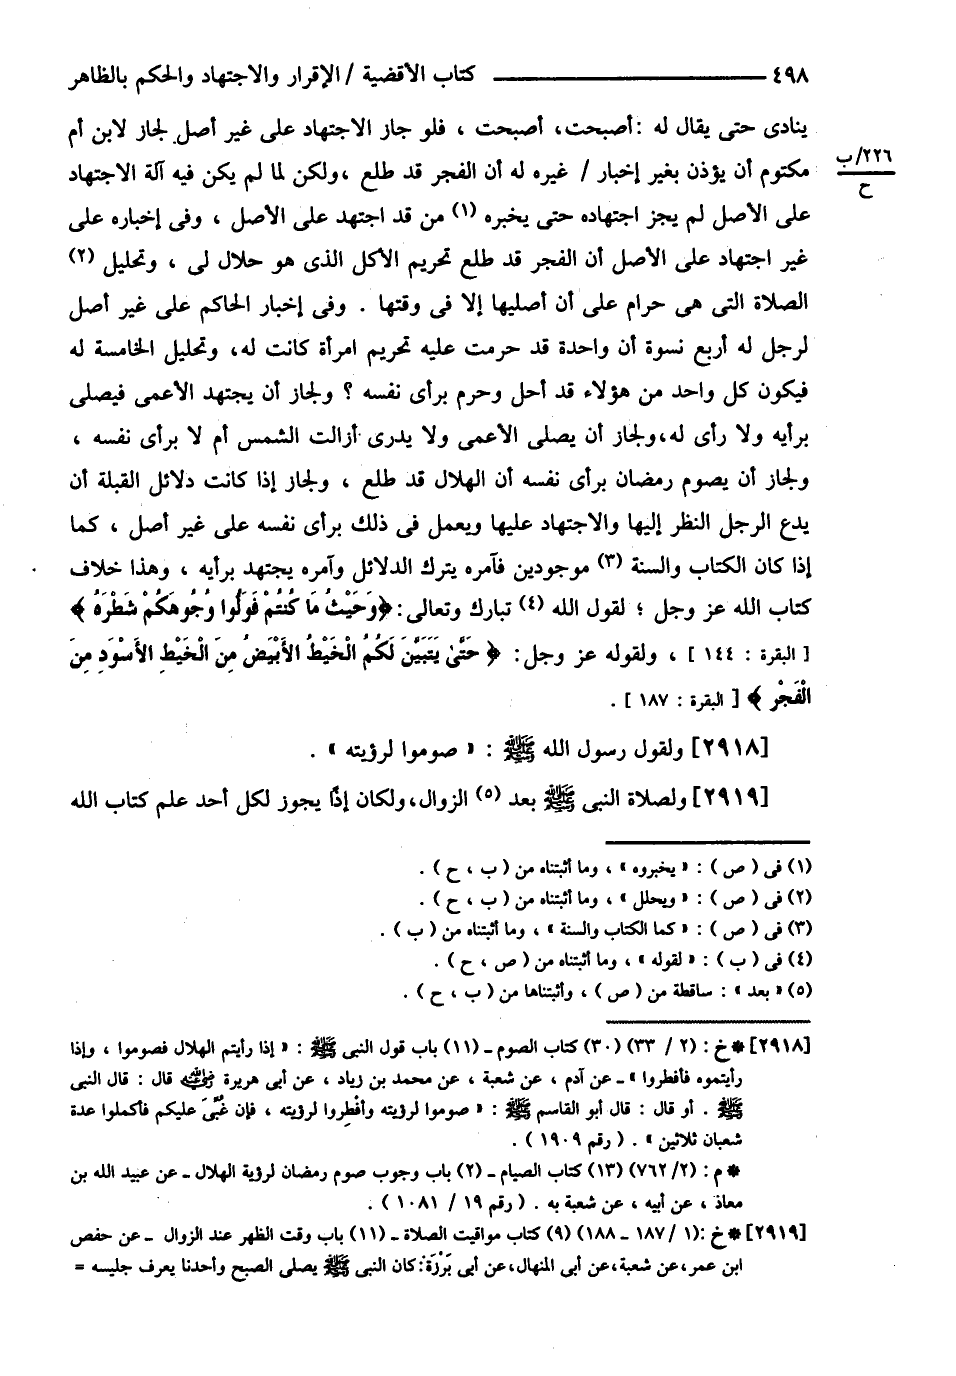 ٤٩٨ ـــــــــــ كتاب الأقضية / الإقرار والاجتهاد والحكم بالظاهر
ينادى حتى يقال له : أصبحت، أصبحت ، فلو جاز الاجتهاد على غير أصل لجاز لابن أم
٢٢٦/ب
ح
مكتوم أن يؤذن بغير إخبار / غيره له أن الفجر قد طلع ،ولكن لما لم يكن فيه آلة الاجتهاد
على الأصل لم يجز اجتهاده حتى يخبره (١) من قد اجتهد على الأصل ، وفى إخباره على
غير اجتهاد على الأصل أن الفجر قد طلع تحريم الأكل الذى هو حلال لى ، وتحليل (٢)
الصلاة التى هى حرام على أن أصليها إلا فى وقتها . وفى إخبار الحاكم على غير أصل
لرجل له أربع نسوة أن واحدة قد حرمت عليه تحريم امرأة كانت له، وتحليل الخامسة له
فيكون كل واحد من هؤلاء قد أحل وحرم برأى نفسه ؟ ولجاز أن يجتهد الأعمى فيصلى
برأيه ولا رأى له،ولجاز أن يصلى الأعمى ولا يدرى أزالت الشمس أم لا برأى نفسه ،
ولجاز أن يصوم رمضان برأى نفسه أن الهلال قد طلع ، ولجاز إذا كانت دلائل القبلة أن
يدع الرجل النظر إليها والاجتهاد عليها ويعمل فى ذلك برأى نفسه على غير أصل ، كما
إذا كان الكتاب والسنة (٣) موجودين فآمره يترك الدلائل وآمره يجتهد برأيه ، وهذا خلاف
كتاب الله عز وجل ؛ لقول الله (٤) تبارك وتعالى : ﴿وَحَيْثُ مَا كُنتُمْ فَوَلُّوا وُجُوهَكُمْ شَطْرَهُ ﴾
[ البقرة : ١٤٤ ] ، ولقوله عز وجل : ﴿ حَتَّىٰ يَتَبَيَّنَ لَكُمُ الْخَيْطُ الأَبْيَضُ مِنَ الْخَيْطِ الأَسْوَدِ مِنَ
الْفَجْرِ ﴾ [ البقرة : ١٨٧ ] .
[٢٩١٨] ولقول رسول الله ﷺ : « صوموا لرؤيته » .
[٢٩١٩] ولصلاة النبى ﷺ بعد (٥) الزوال،ولكان إذًا يجوز لكل أحد علم كتاب الله
(١) فى ( ص ) : « يخبروه » ، وما أثبتناه من ( ب ، ح ) .
(٢) فى ( ص ) : « ويحلل » ، وما أثبتناه من ( ب ، ح ) .
(٣) فى ( ص ) : « كما الكتاب والسنة » ، وما أثبتناه من ( ب ) .
(٤) فى ( ب ) : « لقوله » ، وما أثبتناه من ( ص ، ح ) .
(٥) « بعد » : ساقطة من ( ص ) ، وأثبتناها من ( ب ، ح ) .
[٢٩١٨] * خ : (٢ / ٣٣) (٣٠) كتاب الصوم ـ (١١) باب قول النبى ﷺ : « إذا رأيتم الهلال فصوموا ، وإذا
رأيتموه فأفطروا » ـ عن آدم ، عن شعبة ، عن محمد بن زياد ، عن أبى هريرة رضي الله عنه قال : قال النبى
ﷺ . أو قال : قال أبو القاسم ﷺ : « صوموا لرؤيته وأفْطِروا لرؤيته ، فإن غُبِّىَ عليكم فأكملوا عدة
شعبان ثلاثين » . ( رقم ١٩٠٩ ) .
* م : (٢/ ٧٦٢) (١٣) كتاب الصيام ـ (٢) باب وجوب صوم رمضان لرؤية الهلال ـ عن عبيد الله بن
معاذ ، عن أبيه ، عن شعبة به . ( رقم ١٩ / ١٠٨١ ) .
[٢٩١٩] * خ : (١ / ١٨٧ ـ ١٨٨) (٩) كتاب مواقيت الصلاة ـ (١١) باب وقت الظهر عند الزوال ـ عن حفص
ابن عمر، عن شعبة،عن أبى المنهال،عن أبى بَرْزَة: كان النبى ﷺ يصلى الصبح وأحدنا يعرف جليسه =